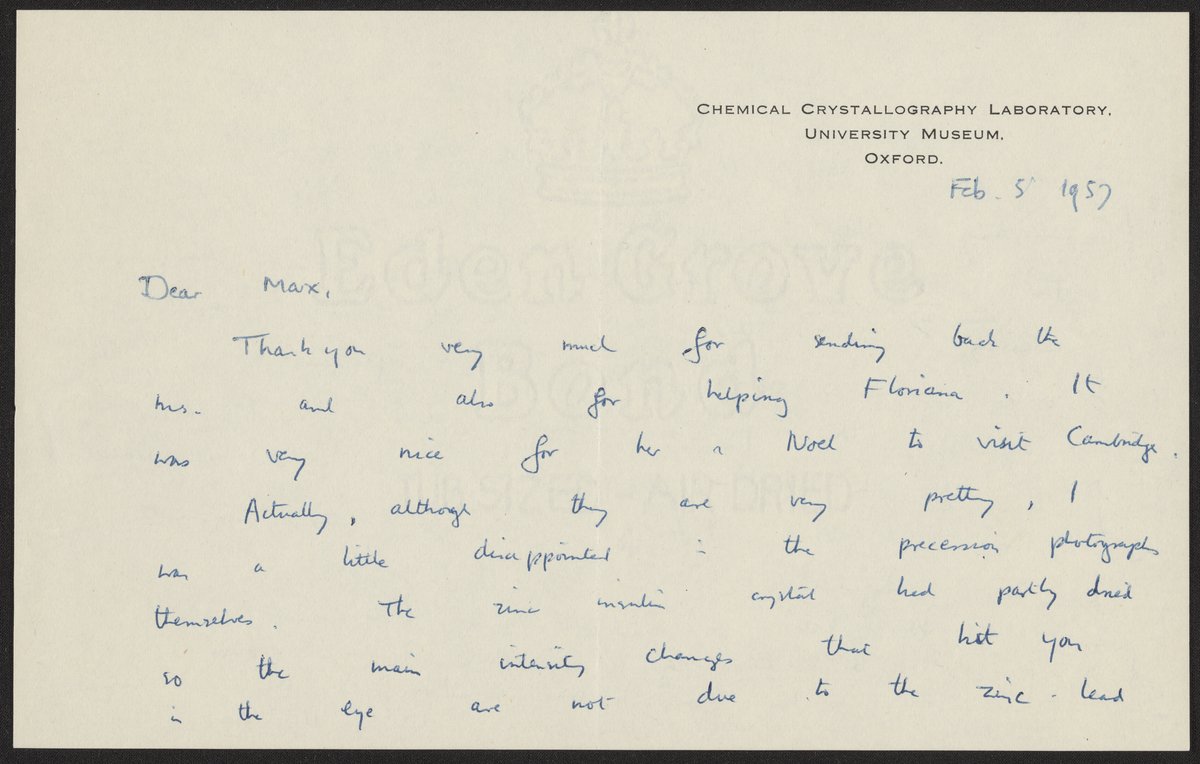 CHEMICAL CRYSTALLOGRAPHY LABORATORY,
UNIVERSITY MUSEUM,
OXFORD.
Feb. 5 1957
Dear Max,
Thank you very much for sending back the
ms. and also for helping Floriana. It
was very nice for her & Noel to visit Cambridge.
Actually, although they are very pretty, I
was a little disappointed in the precession photographs
themselves. The zinc insulin crystal had partly dried
so the main intensity changes that hit you
in the eye are not due to the zinc-lead
Eden Grove
Bond
TUB SIZED AIR DRIED